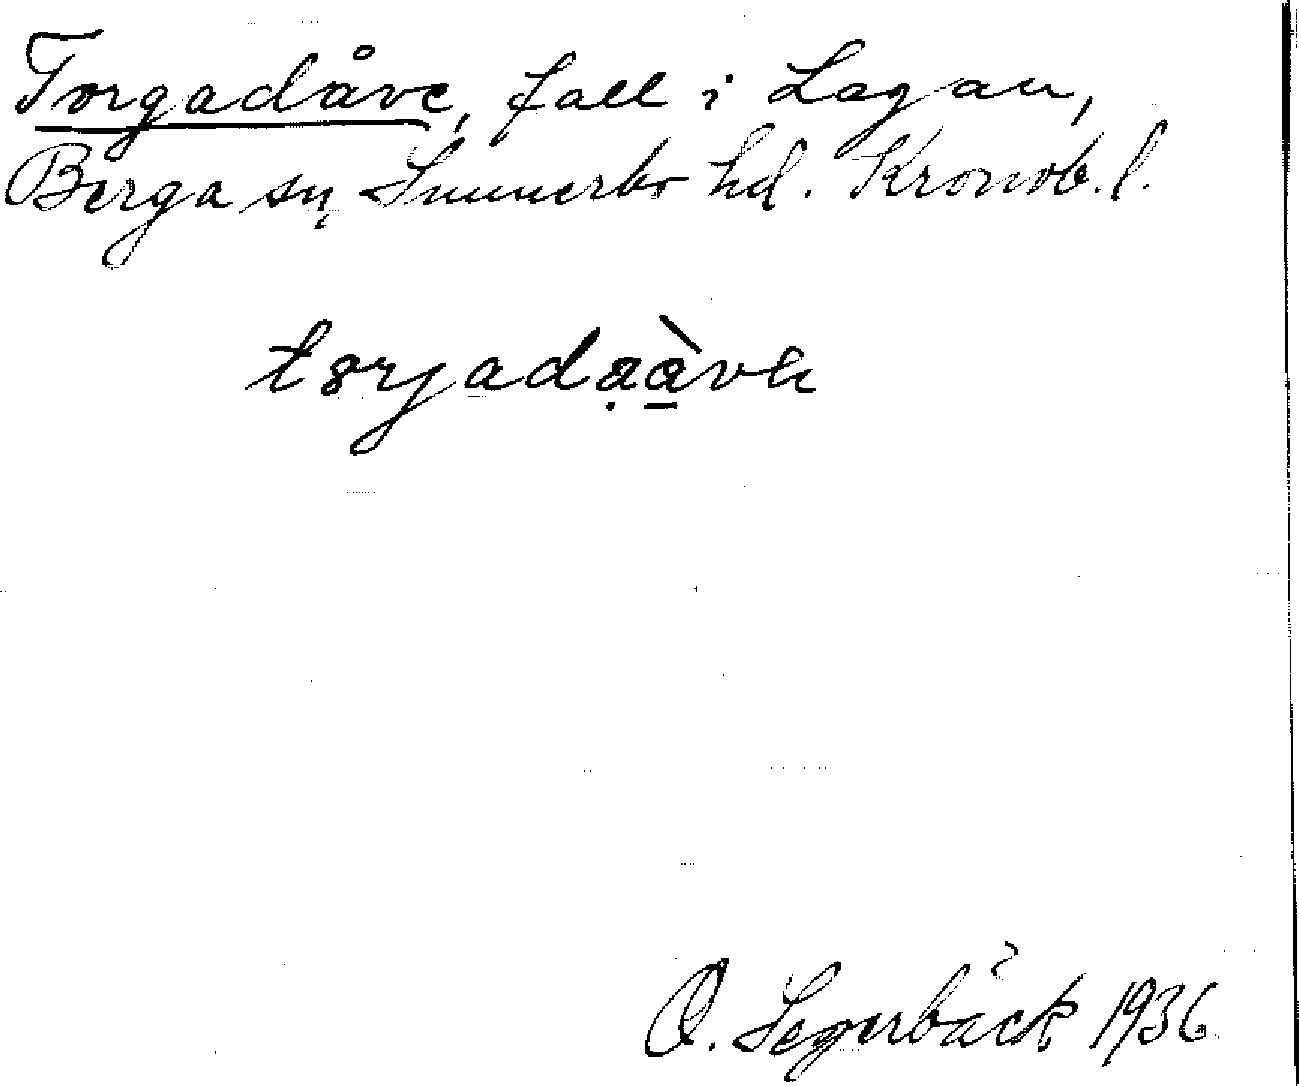 Torgadåve, fall i Lagan,
Berga sn, Sunnerbo hd. Kronob. l.
O. Segerbäck 1936